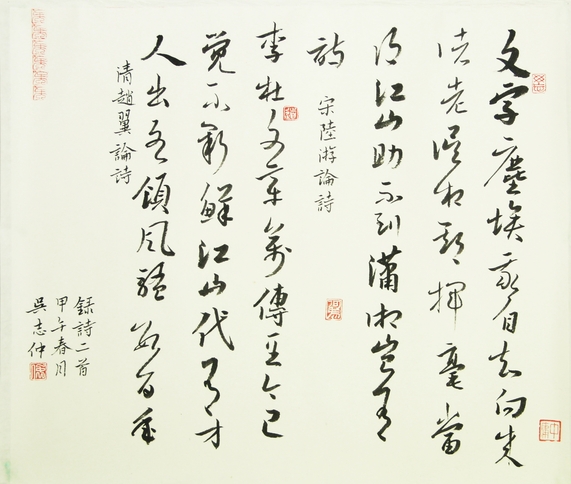 文字塵埃我自知向來
诸老误相期揮毫當
得江山助不到瀟湘豈有
詩
宋陸游論詩
李杜文章萬傳至今已
覺不新鮮江山代有才
人出各領風騷數百年
清趙翼論詩
録詩二首
甲午春月
吳志仲